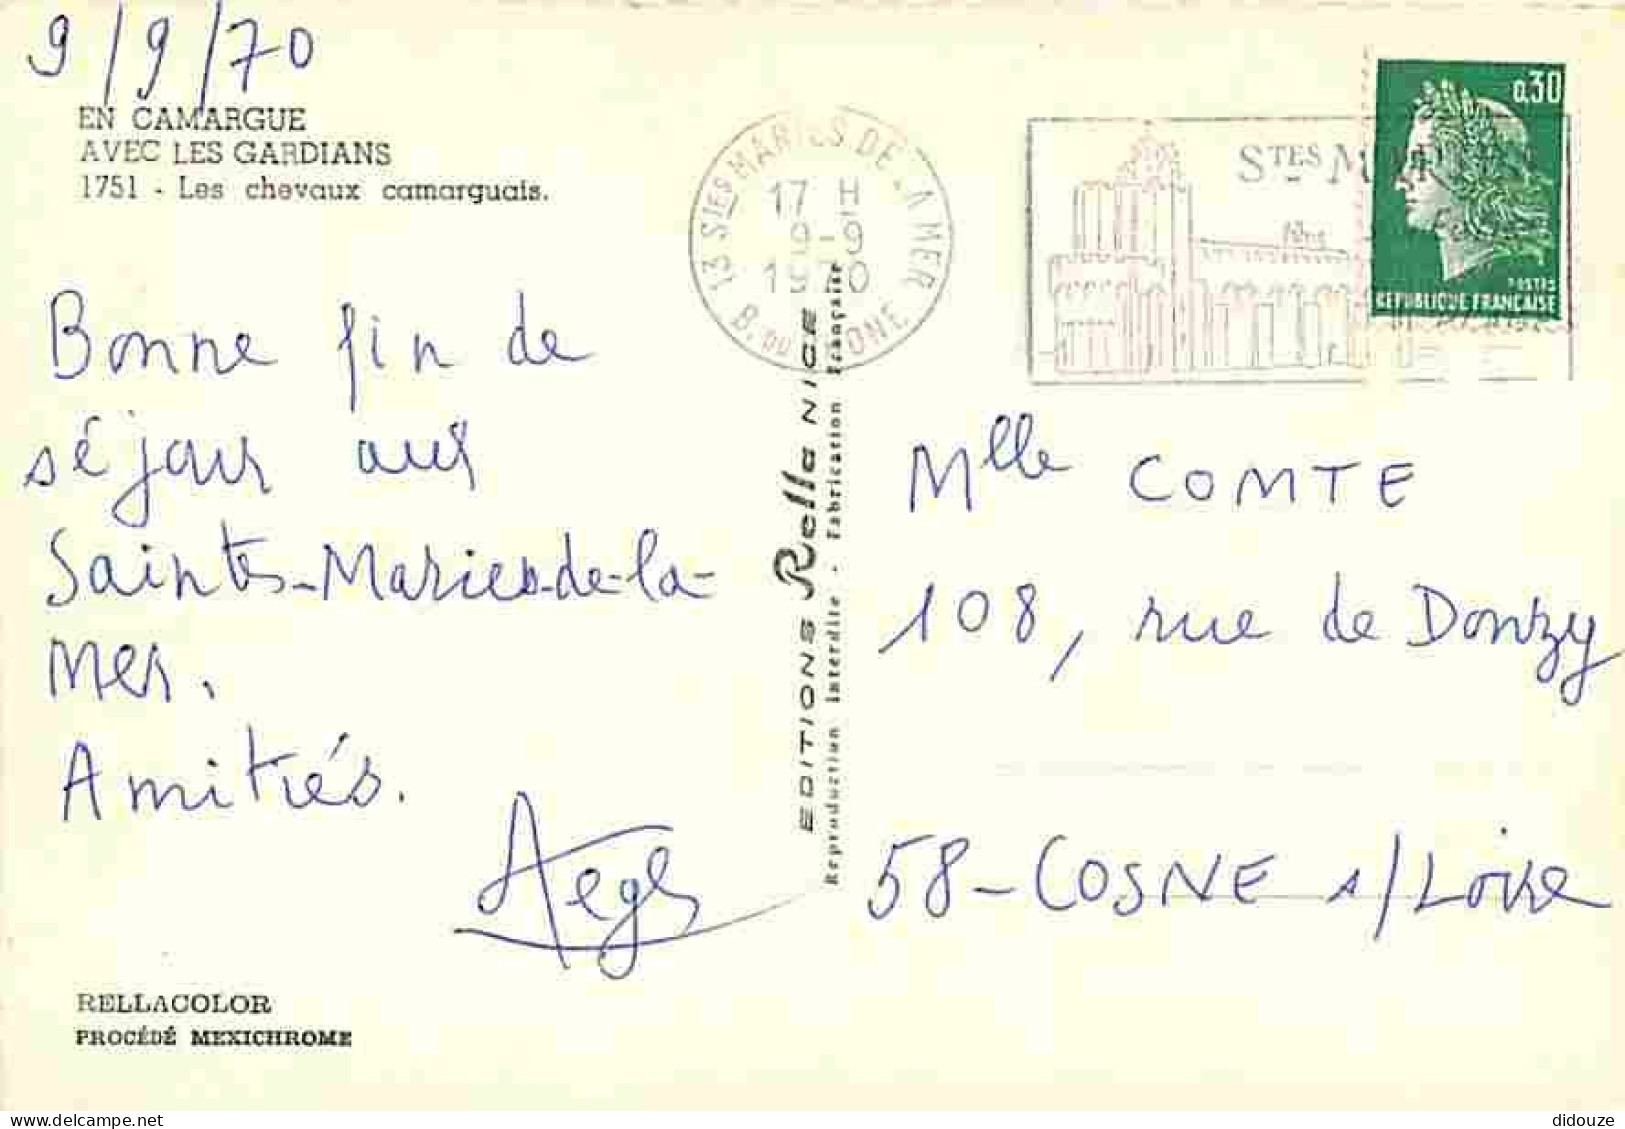 9/9/70
EN CAMARGUE
AVEC LES GARDIANS
1751 - Les chevaux camarguais.
Bonne fin de
séjour aux
Saintes-Maries-de-la-
mer.
Amitiés.
RELLACOLOR
PROCÉDÉ MEXICHROME
EDITIONS Rella NICE
Reproduction interdite - Fabrication Française
13 STES MARIES DE LA MER
17 H
9-9
1970
B. DU RHONE
STES MARIES
0,30
POSTES
REPUBLIQUE FRANÇAISE
Mlle COMTE
108, rue de Donzy
58-COSNE s/Loire
delcampe.net
didouze